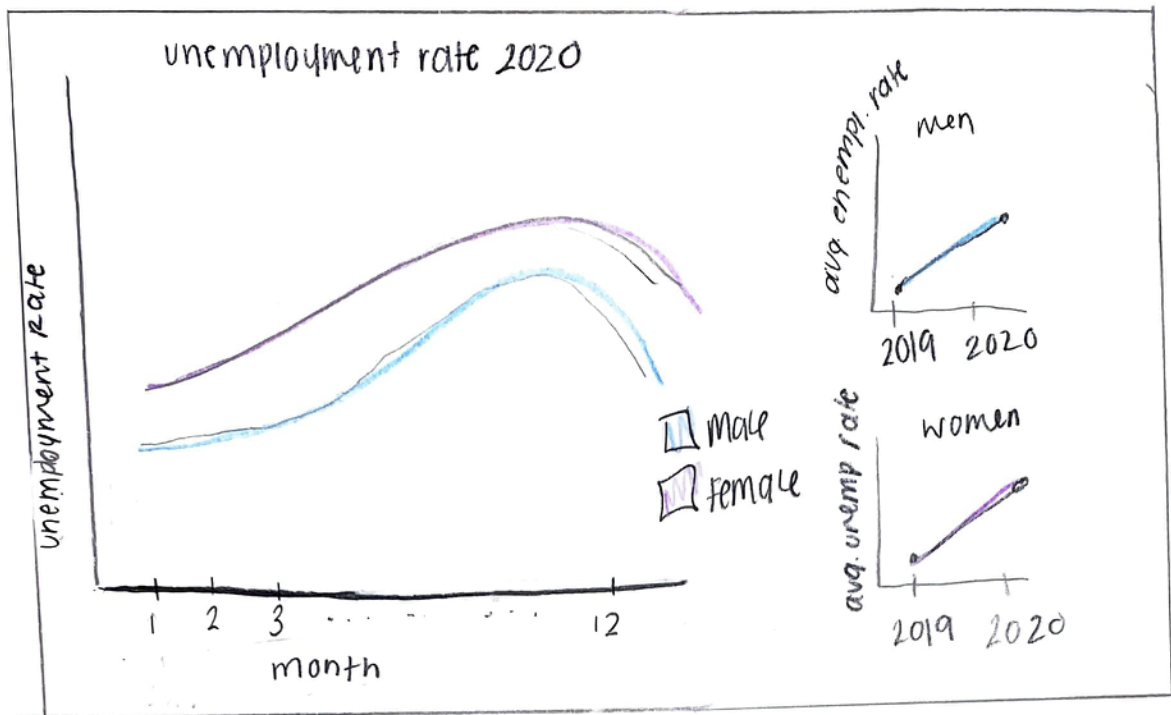 unemployment rate 2020
unemployment rate
1 2 3 ...... 12
month
male
female
men
avg. enempl. rate
2019 2020
women
avg. unemp rate
2019 2020